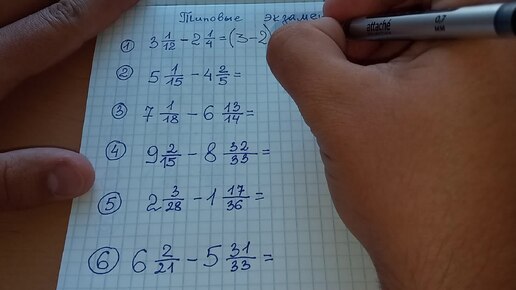 Типовые
① 3 1/12 - 2 1/4 = (3-2)
② 5 1/15 - 4 2/5 =
③ 7 1/18 - 6 13/14 =
④ 9 2/15 - 8 32/33 =
⑤ 2 3/28 - 1 17/36 =
⑥ 6 2/21 - 5 31/33 =
attaché 0,7 мм